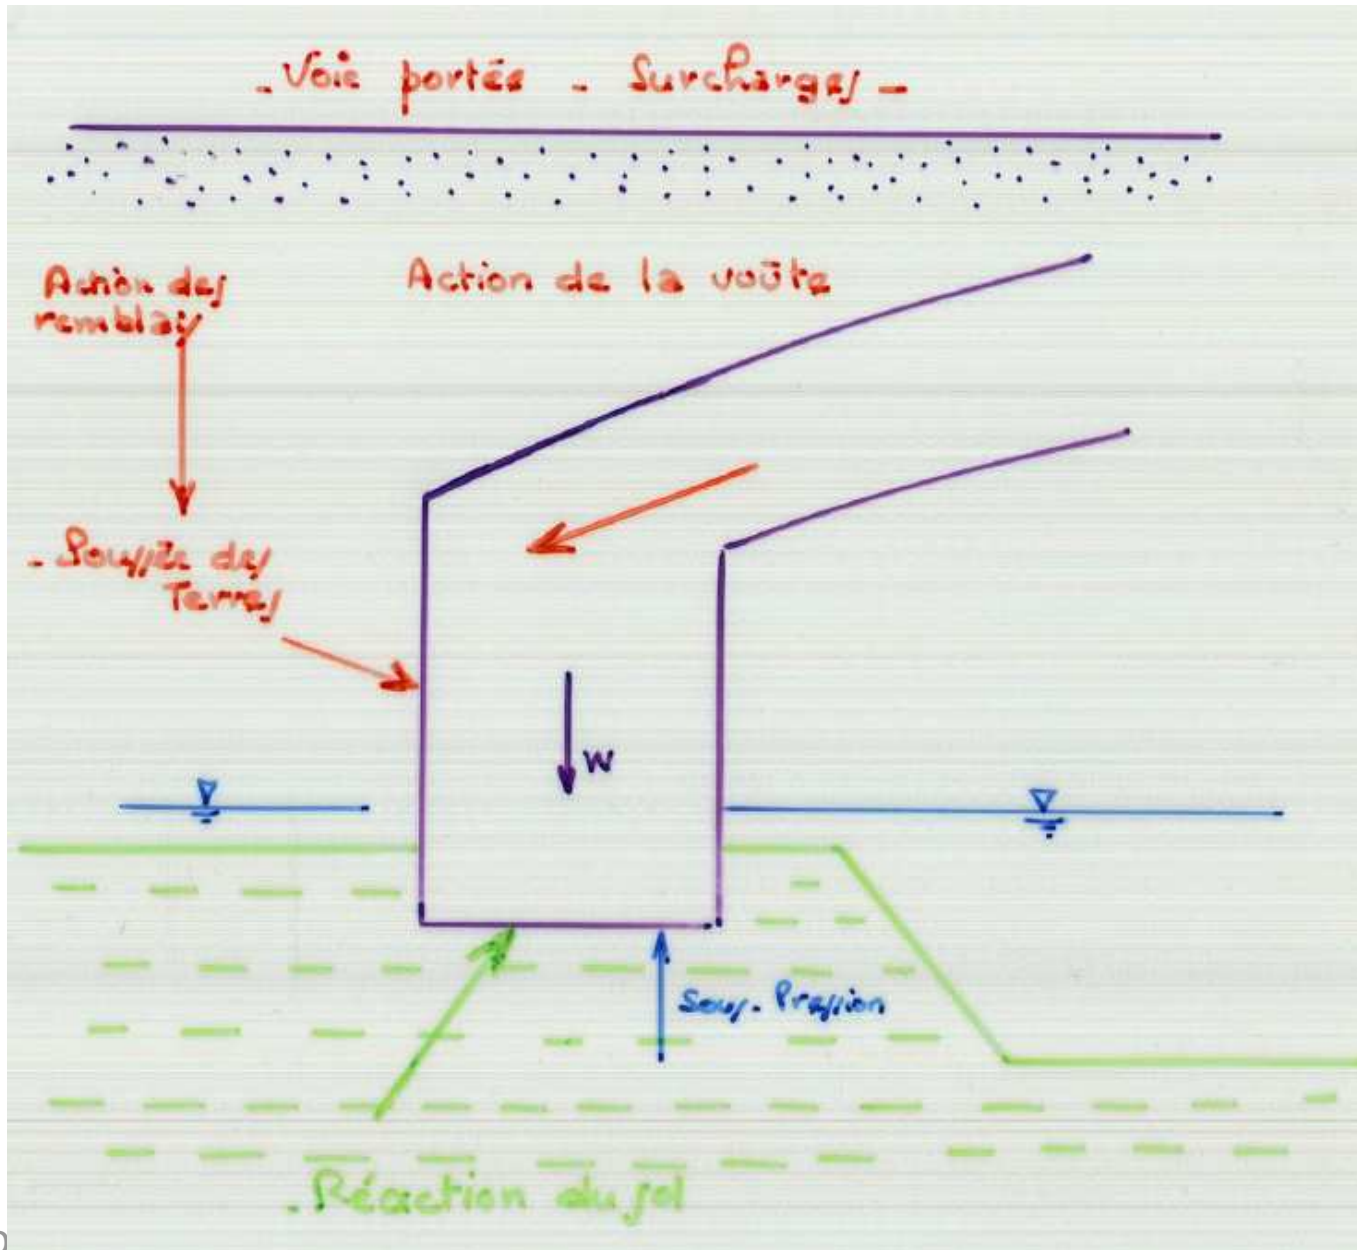 - Voie portée - Surcharges -
Action des
remblais
Action de la voûte
- Poussée des
Terres
W
Sous-Pression
- Réaction du sol